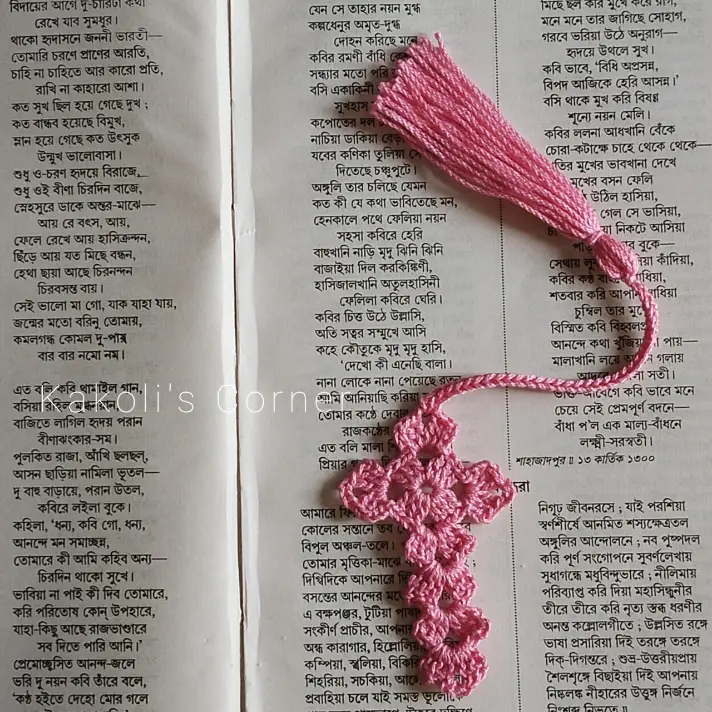 বিদায়ের আগে দু-চারিটা কথা
রেখে যাব সুমধুর।
থাকো হৃদাসনে জননী ভারতী—
তোমারি চরণে প্রাণের আরতি,
চাহি না চাহিতে আর কারো প্রতি,
রাখি না কাহারো আশা।
কত সুখ ছিল হয়ে গেছে দুখ ;
কত বান্ধব হয়েছে বিমুখ,
ম্লান হয়ে গেছে কত উৎসুক
উন্মুখ ভালোবাসা।
শুধু ও-চরণ হৃদয়ে বিরাজে,
শুধু ওই বীণা চিরদিন বাজে,
স্নেহসুরে ডাকে অন্তর-মাঝে—
আয় রে বৎস, আয়,
ফেলে রেখে আয় হাসিক্রন্দন,
ছিঁড়ে আয় যত মিছে বন্ধন,
হেথা ছায়া আছে চিরনন্দন
চিরবসন্ত বায়।
সেই ভালো মা গো, যাক যাহা যায়,
জন্মের মতো বরিনু তোমায়,
কমলগন্ধ কোমল দু-পায়
বার বার নমো নম।
এত বলি কবি থামাইল গান,
বসিয়া রহিল
বাজিতে লাগিল হৃদয় পরান
বীণাঝংকার-সম।
পুলকিত রাজা, আঁখি ছলছল্‌,
আসন ছাড়িয়া নামিলা ভূতল—
দু বাহু বাড়ায়ে, পরান উতল,
কবিরে লইলা বুকে।
কহিলা, 'ধন্য, কবি গো, ধন্য,
আনন্দে মন সমাচ্ছন্ন,
তোমারে কী আমি কহিব অন্য—
চিরদিন থাকো সুখে।
ভাবিয়া না পাই কী দিব তোমারে,
করি পরিতোষ কোন্‌ উপহারে,
যাহা-কিছু আছে রাজভাণ্ডারে
সব দিতে পারি আনি।'
প্রেমোচ্ছ্বসিত আনন্দ-জলে
ভরি দু নয়ন কবি তাঁরে বলে,
'কণ্ঠ হইতে দেহো মোর গলে
Kakoli's Corner
যেন সে তাহার নয়ন মুগ্ধ
কল্পধেনুর অমৃত-দুগ্ধ
দোহন করিছে মনে
কবির রমণী বাঁধি
সন্ধ্যার মতো পরি
বসি একাকিনী
সুখহাস
কপোতের দল
নাচিয়া ডাকিয়া
যবের কণিকা তুলিয়া
দিতেছে চঞ্চুপুটে।
অঙ্গুলি তার চলিছে যেমন
কত কী যে কথা ভাবিতেছে মন,
হেনকালে পথে ফেলিয়া নয়ন
সহসা কবিরে হেরি
বাহুখানি নাড়ি মৃদু ঝিনি ঝিনি
বাজাইয়া দিল করকিঙ্কিণী,
হাসিজালখানি অতুলহাসিনী
ফেলিলা কবিরে ঘেরি।
কবির চিত্ত উঠে উল্লাসি,
অতি সত্বর সম্মুখে আসি
কহে কৌতুকে মৃদু মৃদু হাসি,
'দেখো কী এনেছি বালা।
নানা লোকে নানা পেয়েছে
আমি আনিয়াছি করিয়া
তোমার কণ্ঠে
রাজকণ্ঠের
এত বলি মালা
প্রিয়ার
মিছে ছল করি মুখে করে রাগ,
মনে মনে তার জাগিছে সোহাগ,
গরবে ভরিয়া উঠে অনুরাগ—
হৃদয়ে উথলে সুখ।
কবি ভাবে, 'বিধি অপ্রসন্ন,
বিপদ আজিকে হেরি আসন্ন।'
বসি থাকে মুখ করি বিষণ্ন
শূন্যে নয়ন মেলি।
কবির ললনা আধখানি বেঁকে
চোরা-কটাক্ষে চাহে থেকে থেকে—
মুখের ভাবখানা দেখে
মুখের বসন ফেলি
উঠিল হাসিয়া,
গেল সে ভাসিয়া,
নিকটে আসিয়া
বুকে—
সেথায় কাঁদিয়া,
কবির কণ্ঠ
শতবার করি
চুম্বিল তার মুখে।
বিস্মিত কবি
আনন্দে কথা পায়—
মালাখানি লয়ে গলায়
সতী।
ভক্তি-আবেগে কবি ভাবে মনে
চেয়ে সেই প্রেমপূর্ণ বদনে—
বাঁধা প'ল এক মাল্য-বাঁধনে
লক্ষ্মী-সরস্বতী।
শাহাজাদপুর॥ ১৩ কার্তিক ১৩০০
আমারে
কোলের সন্তানে তব
বিপুল অঞ্চল-তলে।
তোমার মৃত্তিকা-মাঝে
দিগ্বিদিকে আপনারে
বসন্তের আনন্দের মতো
এ বক্ষপঞ্জর, টুটিয়া
সংকীর্ণ প্রাচীর,
অন্ধ কারাগার,
কম্পিয়া, স্খলিয়া,
শিহরিয়া, সচকিয়া,
প্রবাহিয়া চলে যাই সমস্ত ভূলোকে
নিগূঢ় জীবনরসে ; যাই পরশিয়া
স্বর্ণশীর্ষে আনমিত শস্যক্ষেত্রতল
অঙ্গুলির আন্দোলনে ; নব পুষ্পদল
করি পূর্ণ সংগোপনে সুবর্ণলেখায়
সুধাগন্ধে মধুবিন্দুভারে ; নীলিমায়
পরিব্যাপ্ত করি দিয়া মহাসিন্ধুনীর
তীরে তীরে করি নৃত্য স্তব্ধ ধরণীর
অনন্ত কল্লোলগীতে ; উল্লসিত রঙ্গে
ভাষা প্রসারিয়া দিই তরঙ্গে তরঙ্গে
দিক-দিগন্তরে ; শুভ্র-উত্তরীয়প্রায়
শৈলশৃঙ্গে বিছাইয়া দিই আপনায়
নিষ্কলঙ্ক নীহারের উত্তুঙ্গ নির্জনে